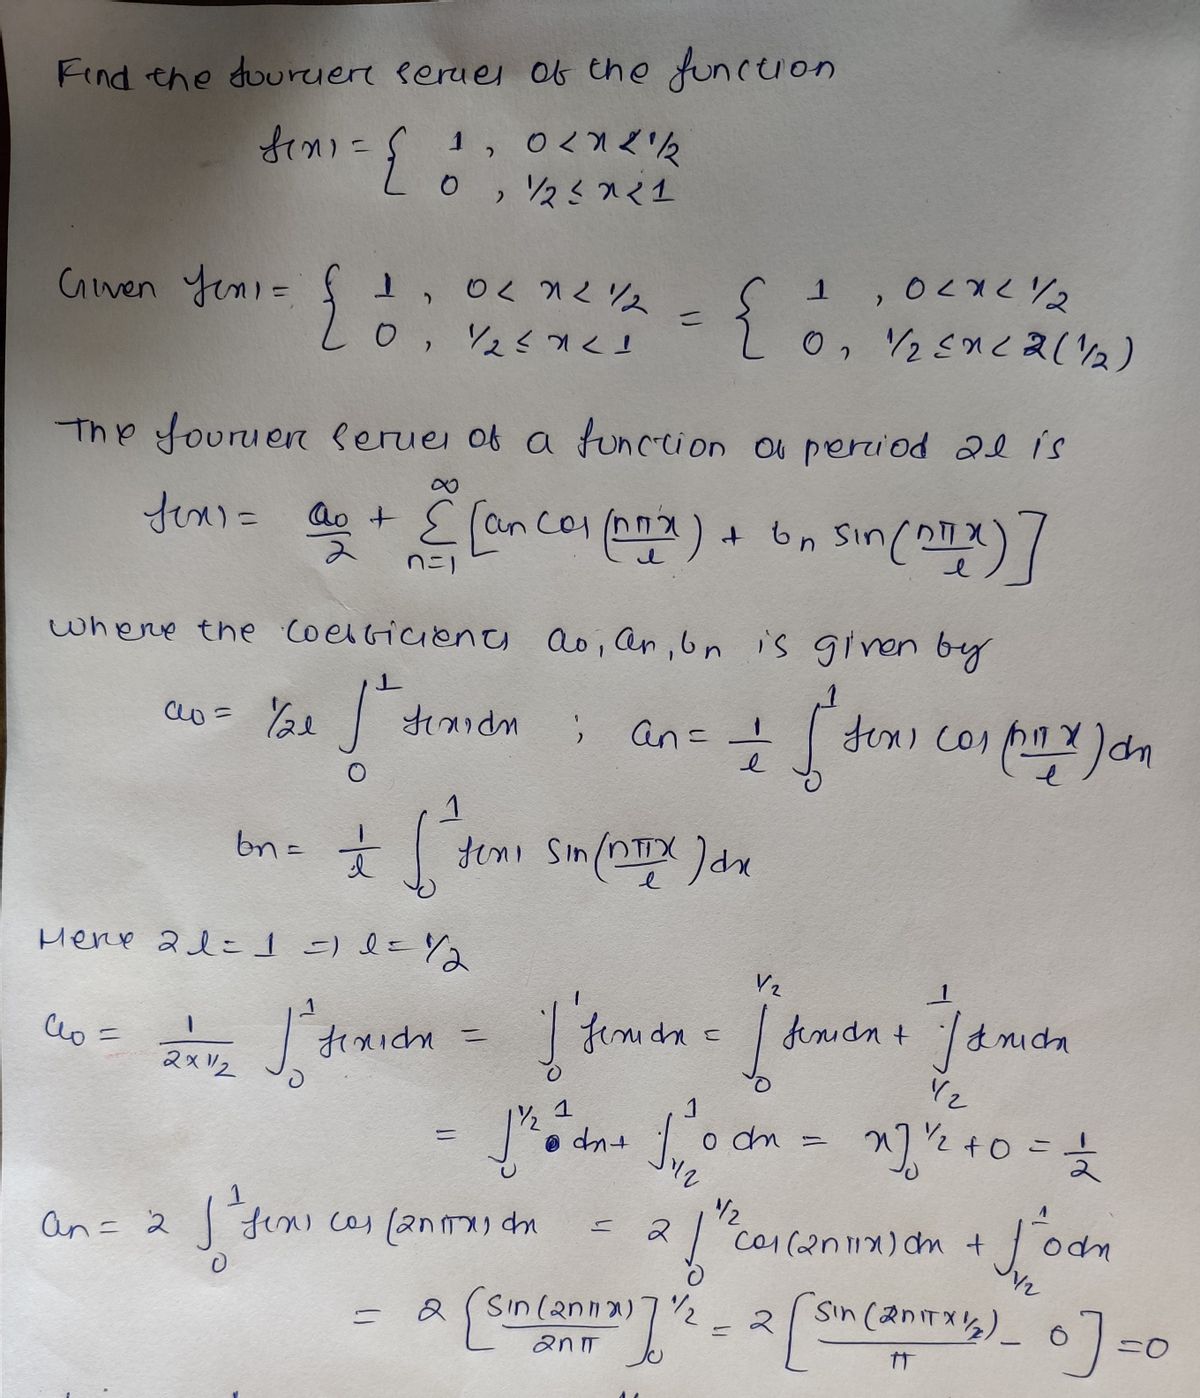 Find the fourier series of the function
f(x) = { 1 , 0 < x < 1/2
0 , 1/2 ≤ x < 1
Given f(x) = { 1 , 0 < x < 1/2 = { 1 , 0 < x < 1/2
0 , 1/2 ≤ x < 1 0 , 1/2 ≤ x < 2(1/2)
The fourier series of a function of period 2l is
f(x) = a0/2 + ∑_{n=1}^{∞} [an cos (nπx/l) + bn sin (nπx/l)]
where the coefficients a0, an, bn is given by
a0 = 1/2l ∫_0^1 f(x) dx ; an = 1/l ∫_0^1 f(x) cos (nπx/l) dx
bn = 1/l ∫_0^1 f(x) sin (nπx/l) dx
Here 2l = 1 => l = 1/2
a0 = 1/(2x1/2) ∫_0^1 f(x) dx = ∫_0^1 f(x) dx = ∫_0^{1/2} f(x) dx + ∫_{1/2}^1 f(x) dx
= ∫_0^{1/2} 1 dx + ∫_{1/2}^1 0 dx = x]_0^{1/2} + 0 = 1/2
an = 2 ∫_0^1 f(x) cos (2nπx) dx = 2 ∫_0^{1/2} cos (2nπx) dx + ∫_{1/2}^1 0 dx
= 2 [sin (2nπx)/2nπ]_0^{1/2} = 2 [sin (2nπ x 1/2)/π - 0] = 0